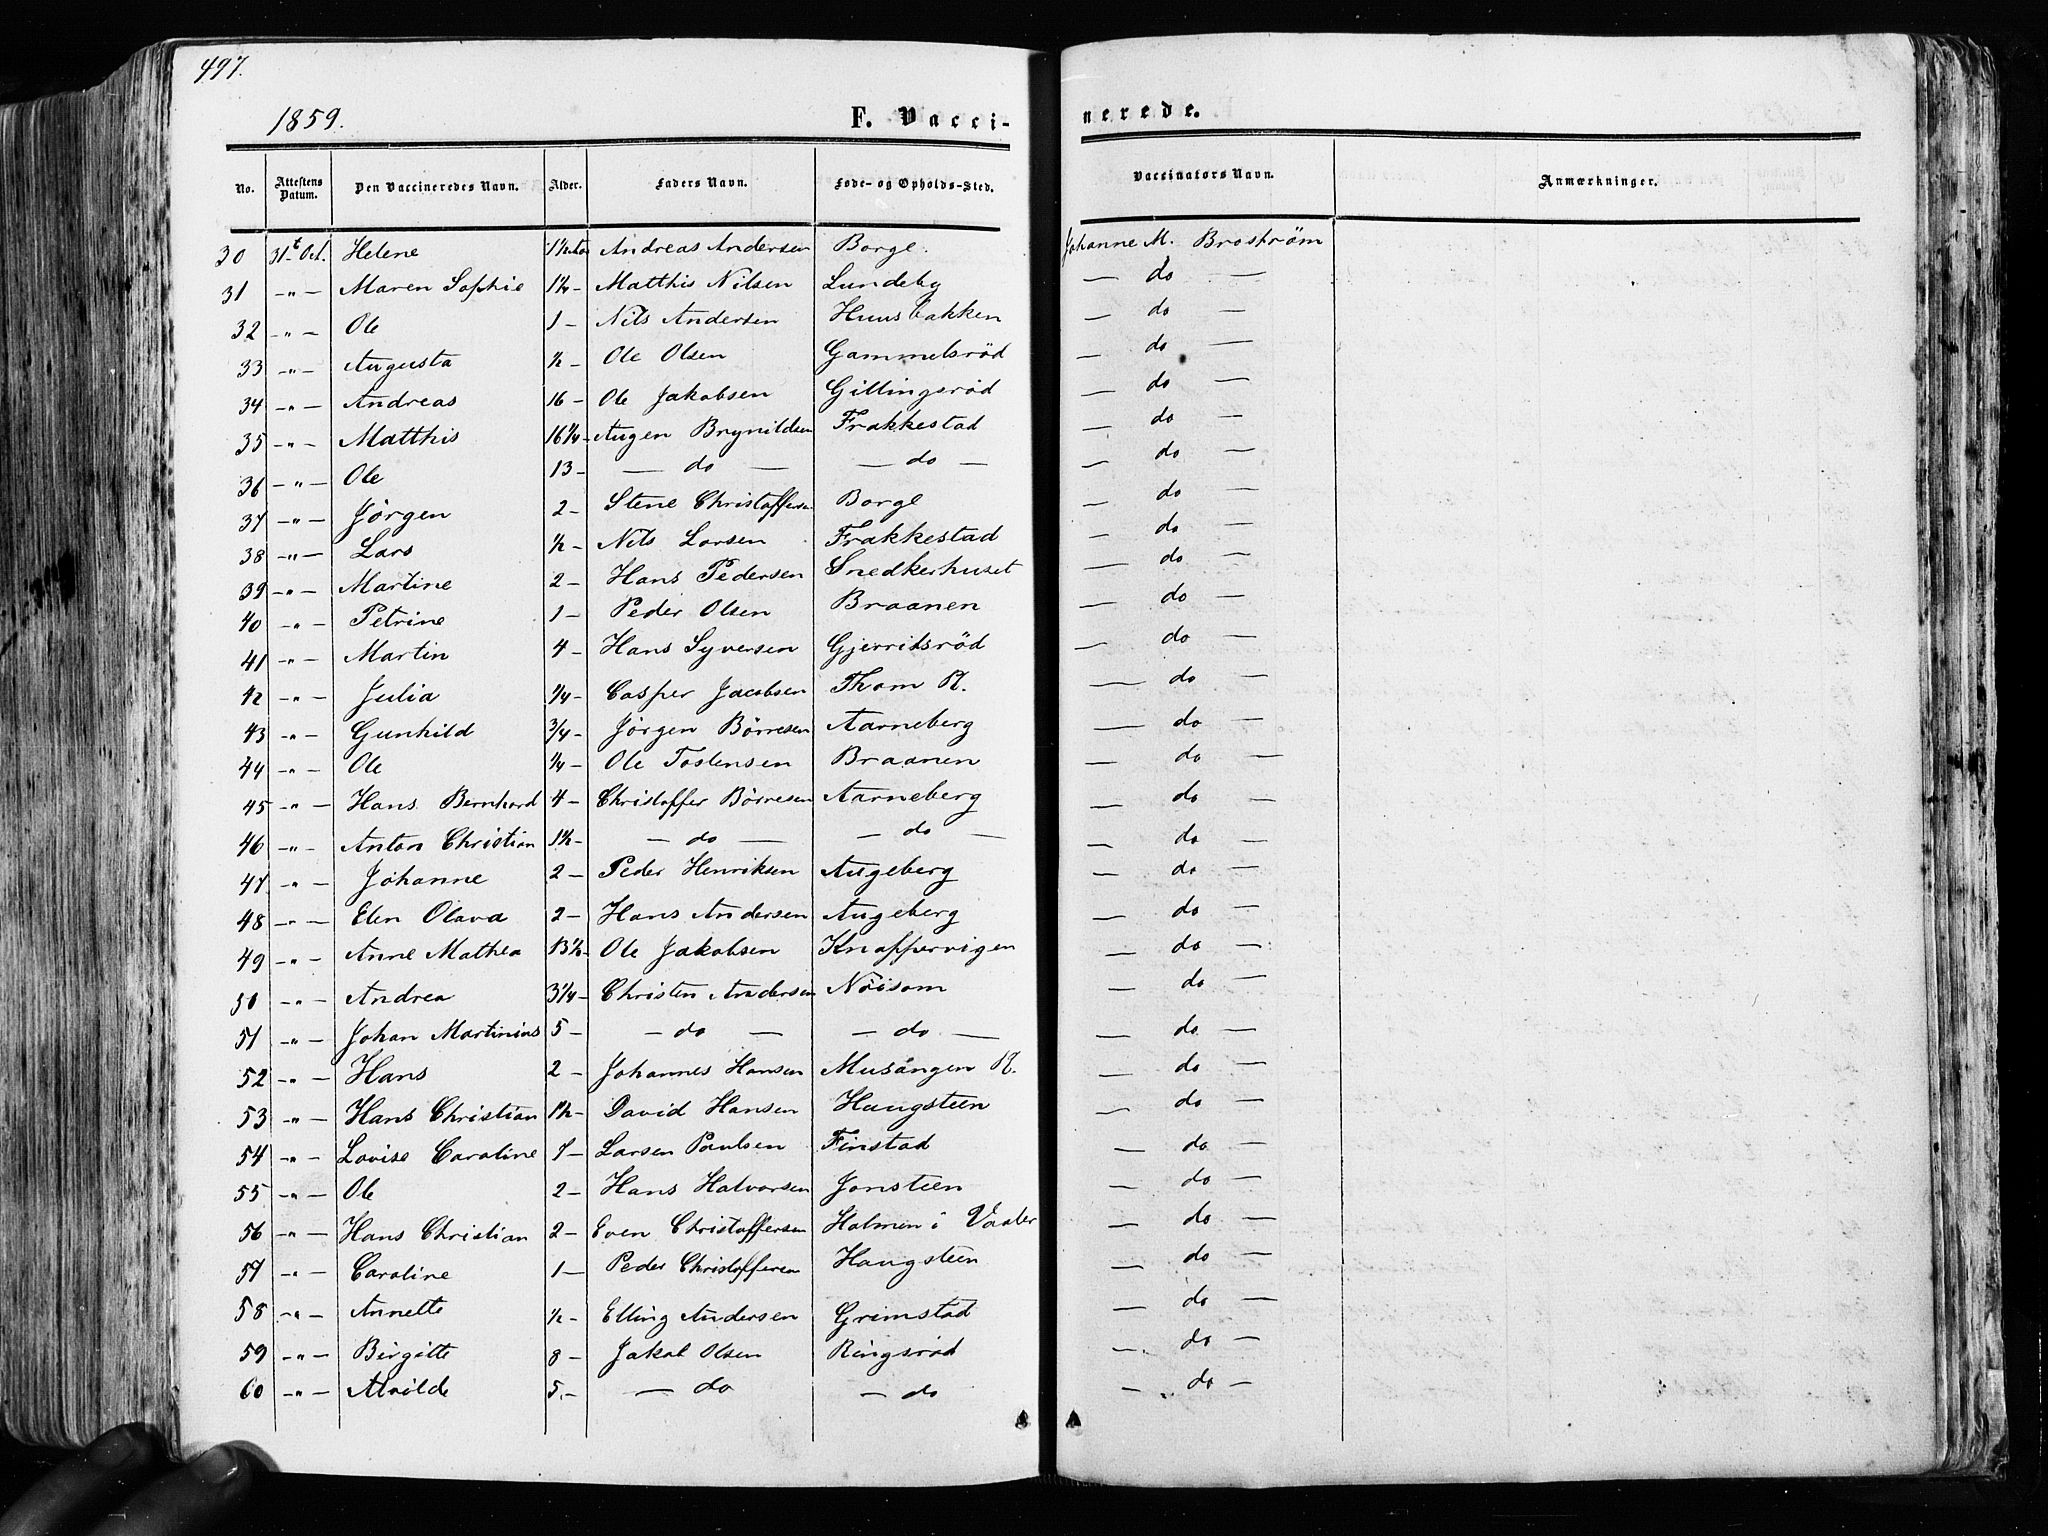 497.
1859. F. Vacci- nerede.
No. Attestens Datum. Den Vaccineredes Navn. Alder. Faders Navn. Føde- og Opholds-Sted. Vaccinators Navn. Anmærkninger.
30 31t Oct. Helene 1½ Andreas Andersen Borge. Johanne M. Broström
31 -"- Maren Sophie 1¼- Matthis Nilsen Lundeby — do —
32 -"- Ole 1- Nils Andersen Huusbakken — do —
33 -"- Augusta ½- Ole Olsen Gammelsröd — do —
34 -"- Andreas 16- Ole Jakobsen Gillingsröd — do —
35 -"- Matthis 16¼- Augen Brynildsen Frakkestad — do —
36 -"- Ole 13- — do — — do — — do —
37 -"- Jörgen 2- Stene Christoffersen Borge — do —
38 -"- Lars ½- Nils Larsen Frakkestad — do —
39 -"- Martine 2- Hans Pedersen Snedkerhuset — do —
40 -"- Petrine 1- Peder Olsen Braanen — do —
41 -"- Martin 4- Hans Syversen Gjerritsröd — do —
42 -"- Julia ¼- Casper Jacobsen Thom R. — do —
43 -"- Gunhild ¾- Jörgen Börresen Aarneberg — do —
44 -"- Ole ¼- Ole Tostensen Braanen — do —
45 -"- Hans Bernhard 4- Christoffer Börresen Aarneberg — do —
46 -"- Anton Christian 1½- — do — — do — — do —
47 -"- Johanne 2- Peder Henriksen Augeberg — do —
48 -"- Elen Olava 2- Hans Andersen Augeberg — do —
49 -"- Anne Mathea 13½- Ole Jakobsen Knappervigen — do —
50 -"- Andrea 3¼- Christen Andersen Nöisom — do —
51 -"- Johan Martinius 5- — do — — do — — do —
52 -"- Hans 2- Johannes Hansen Musangen R. — do —
53 -"- Hans Christian 1½- David Hansen Haugsteen — do —
54 -"- Lovise Caroline 7- Larsen Paulsen Finstad — do —
55 -"- Ole 2- Hans Halvorsen Jonsteen — do —
56 -"- Hans Christian 2- Even Christoffersen Holmen i Vaaler — do —
57 -"- Caroline 1- Peder Christoffersen Haugsteen — do —
58 -"- Annette ½- Elling Andersen Grimstad — do —
59 -"- Birgitte 8- Jakob Olsen Ringsröd — do —
60 -"- Alvilde 5.- — do — do — do —